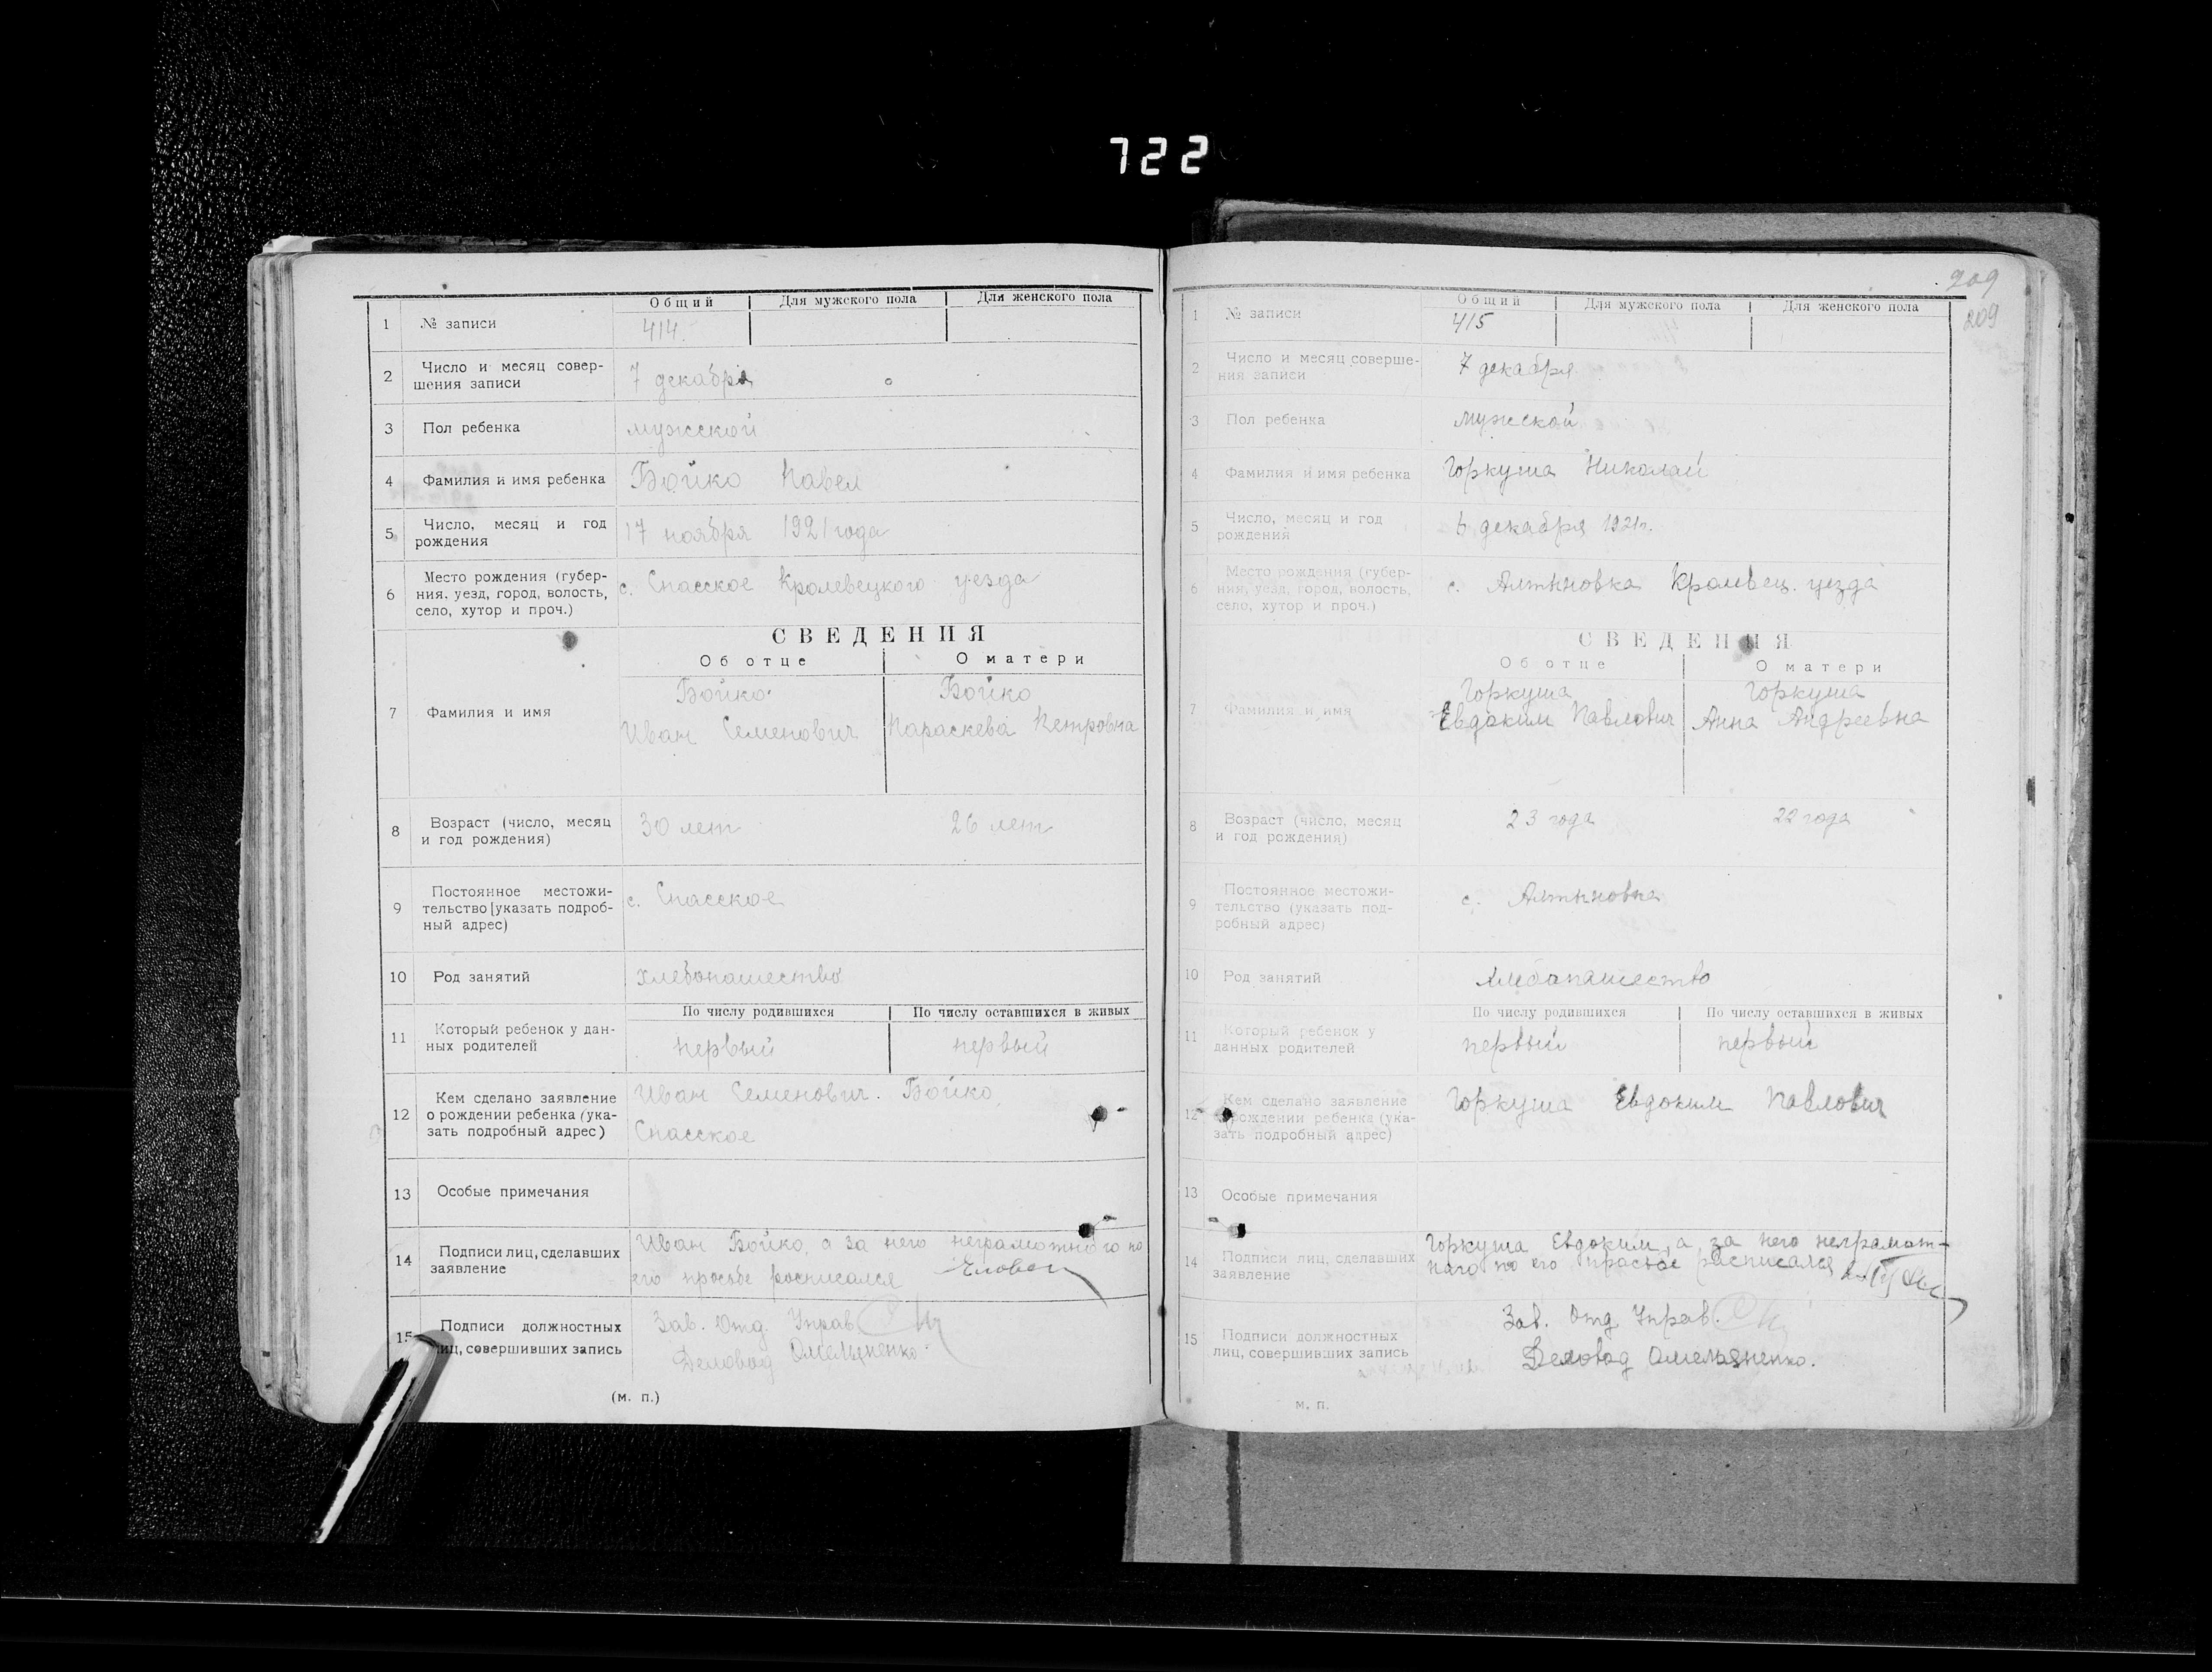 722
Общий Для мужского пола Для женского пола
1 № записи 414.
2 Число и месяц совер-
шения записи 7 декабря
3 Пол ребенка мужской
4 Фамилия и имя ребенка Бойко Павел
5 Число, месяц и год
рождения 17 ноября 1921 года
6 Место рождения (губер-
ния, уезд, город, волость,
село, хутор и проч.) с. Спасское Кролевецкого уезда
СВЕДЕНИЯ
Об отце О матери
7 Фамилия и имя Бойко Бойко
Иван Семенович Параскева Петровна
8 Возраст (число, месяц
и год рождения) 30 лет 26 лет
9 Постоянное местожи-
тельство [указать подроб-
ный адрес) с. Спасское
10 Род занятий хлебопашество
По числу родившихся По числу оставшихся в живых
11 Который ребенок у дан-
ных родителей первый первый
12 Кем сделано заявление
о рождении ребенка (ука-
зать подробный адрес) Иван Семенович. Бойко,
Спасское
13 Особые примечания
14 Подписи лиц, сделавших
заявление Иван Бойко, а за него неграмотного по
его просьбе росписался
15 Подписи должностных
лиц, совершивших запись Зав. Отд. Управ
Деловод Омельяненко.
(м. п.)
209
209
Общий Для мужского пола Для женского пола
1 № записи 415
2 Число и месяц соверше-
ния записи 7 декабря
3 Пол ребенка мужской
4 Фамилия и имя ребенка Горкуша Николай
5 Число, месяц и год
рождения 6 декабря 1921г.
6 Место рождения (губер-
ния, уезд, город, волость,
село, хутор и проч.) с. Алтыновка Кролевец. уезда
СВЕДЕНИЯ
Об отце О матери
7 Фамилия и имя Горкуша Горкуша
Евдоким Павлович Анна Андреевна
8 Возраст (число, месяц
и год рождения) 23 года 22 года
9 Постоянное местожи-
тельство (указать под-
робный адрес) с. Алтыновка
10 Род занятий хлебопашество
По числу родившихся По числу оставшихся в живых
11 Который ребенок у
данных родителей первый первый
12 Кем сделано заявление
о рождении ребенка (ука-
зать подробный адрес) Горкуша Евдоким Павлович
13 Особые примечания
14 Подписи лиц, сделавших
заявление Горкуша Евдоким, а за него неграмот-
наго по его просьбе расписался
15 Подписи должностных
лиц, совершивших запись Зав. Отд Управ.
Деловод Омельяненко.
м. п.